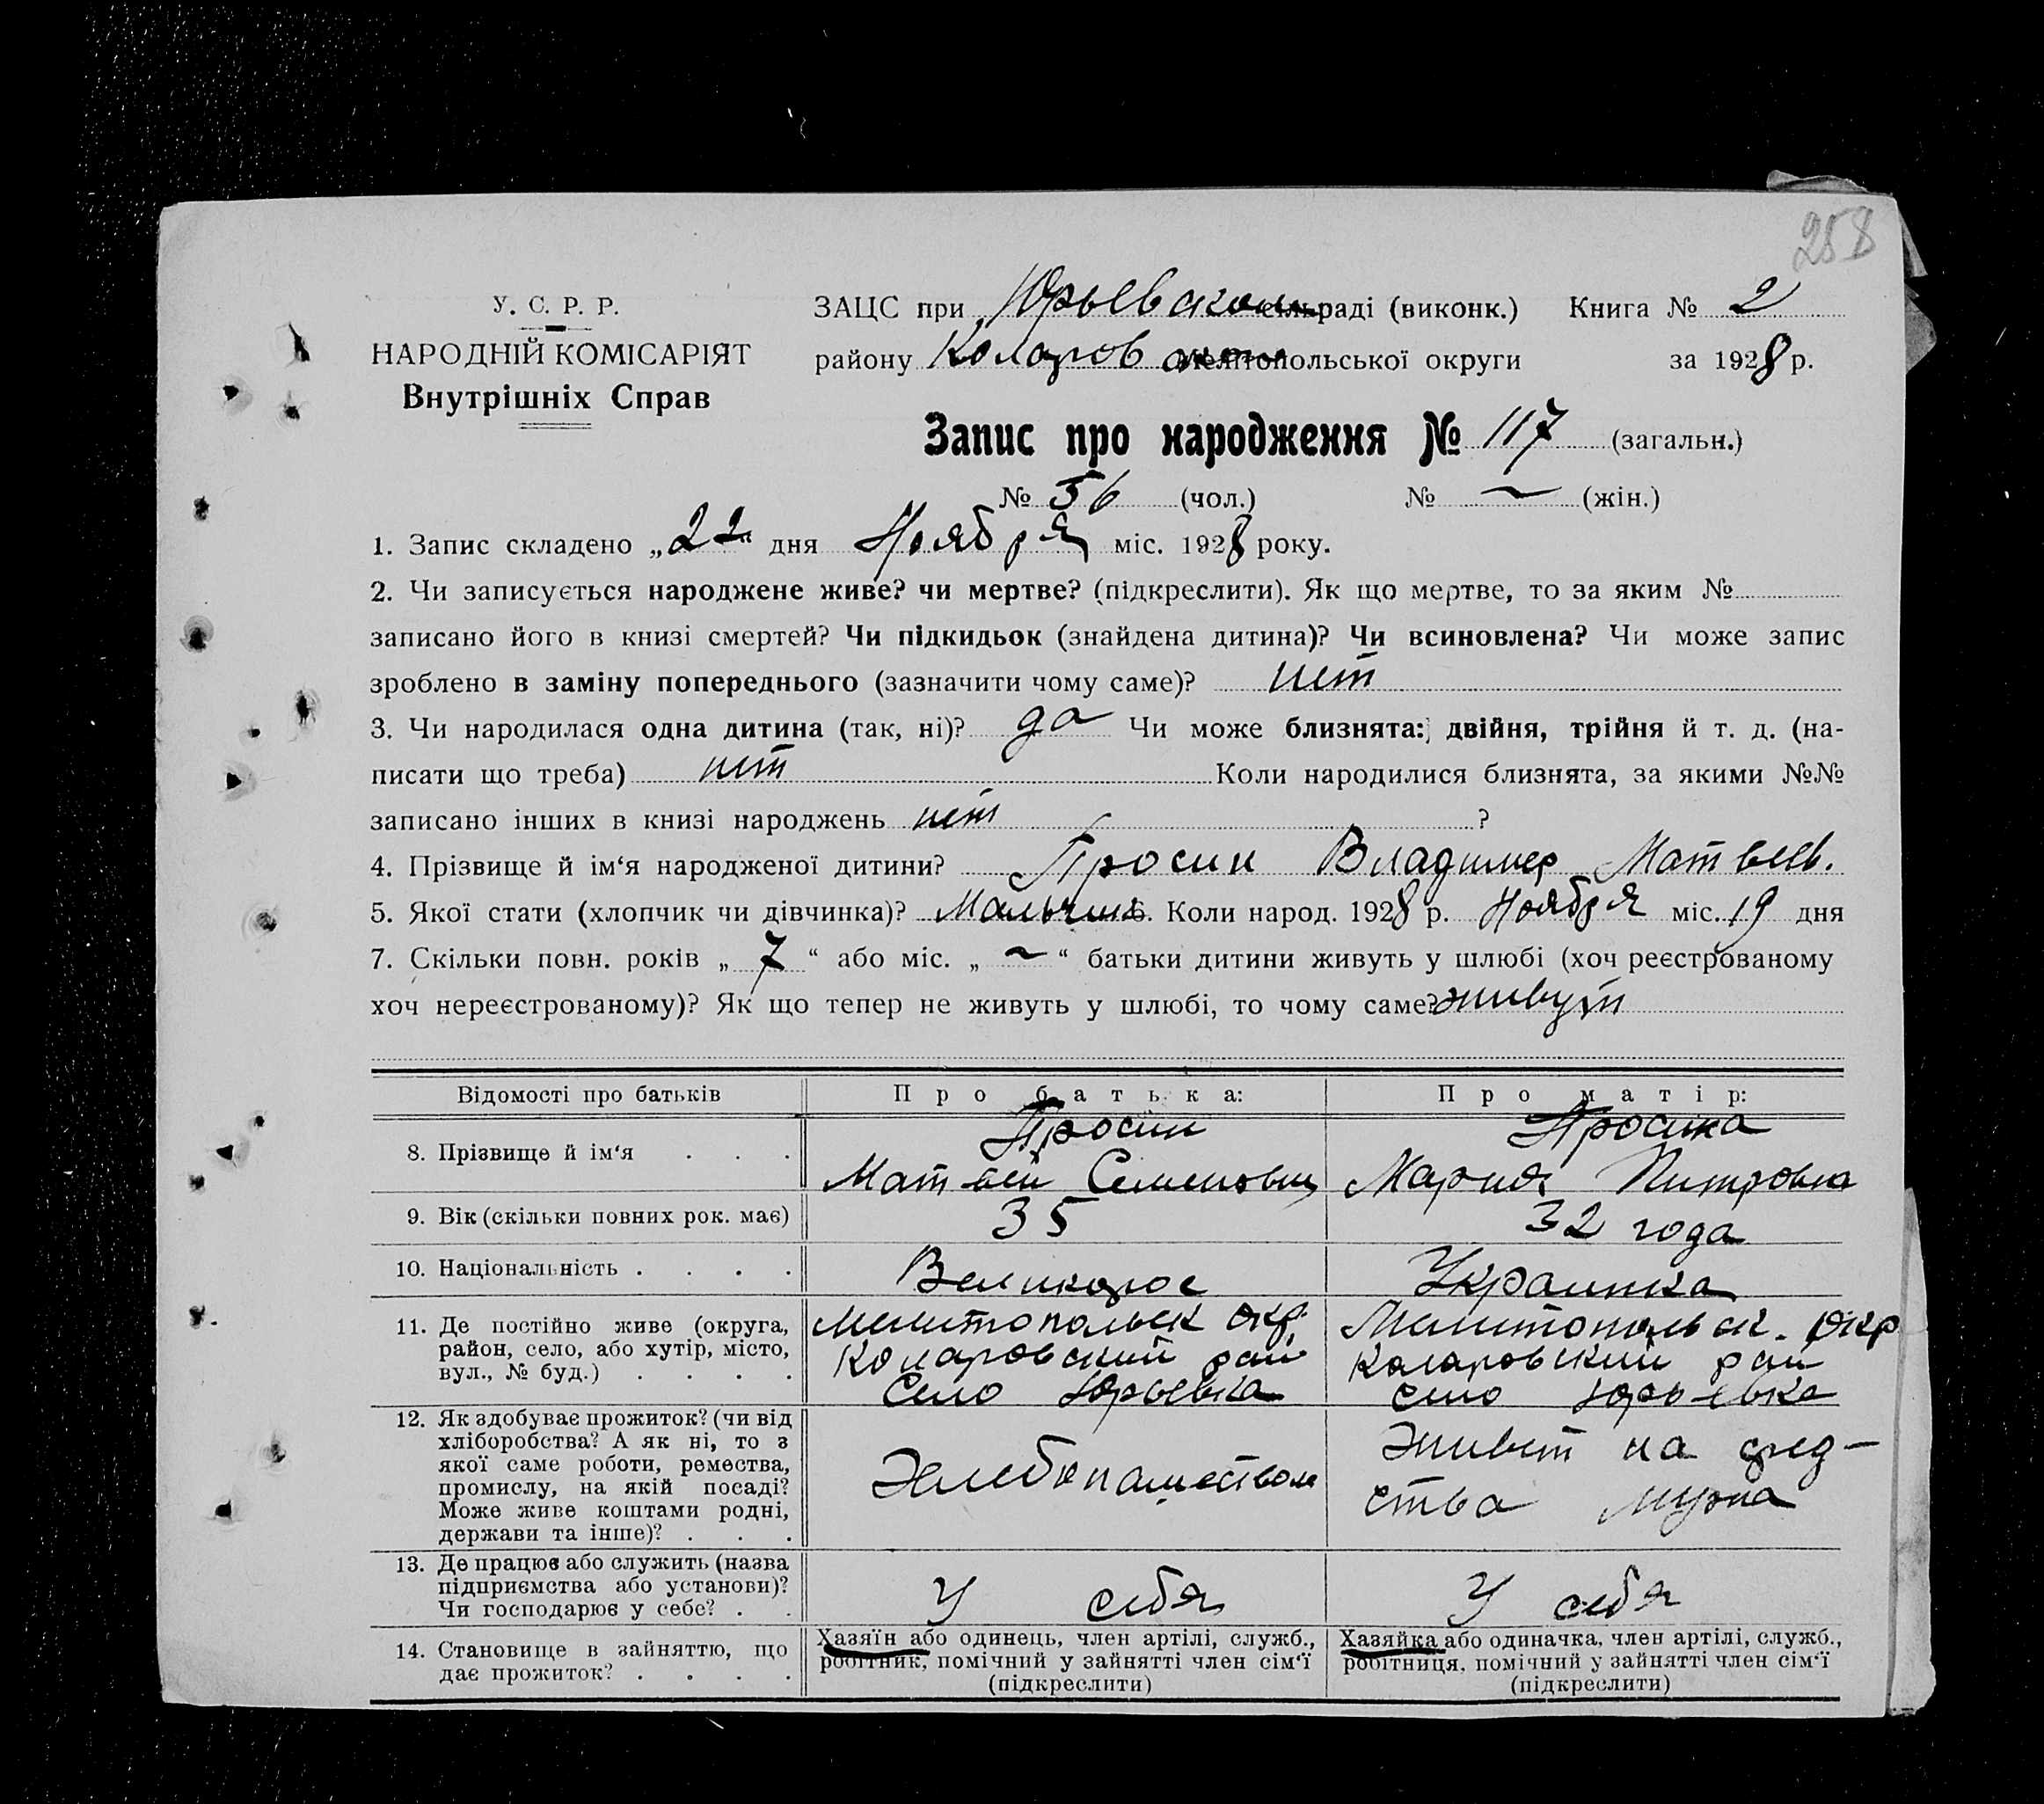 258
У. С. Р. Р.
НАРОДНІЙ КОМІСАРІЯТ
Внутрішніх Справ
ЗАЦС при Юрьевском сільраді (виконк.) Книга № 2
району Коларовском Мелітопольської округи за 1928 р.
Запис про народження № 117 (загальн.)
№ 56 (чол.) № ~ (жін.)
1. Запис складено „22“ дня Ноября міс. 1928 року.
2. Чи записується народжене живе? чи мертве? (підкреслити). Як що мертве, то за яким №
записано його в книзі смертей? Чи підкидьок (знайдена дитина)? Чи всиновлена? Чи може запис
зроблено в заміну попереднього (зазначити чому саме)? нет
3. Чи народилася одна дитина (так, ні)? да Чи може близнята: двійня, трійня й т. д. (на-
писати що треба) нет Коли народилися близнята, за якими №№
записано інших в книзі народжень нет ?
4. Прізвище й ім‘я народженої дитини? Просин Владимер Матвеев.
5. Якої стати (хлопчик чи дівчинка)? Мальчик 6. Коли народ. 1928 р. Ноября міс. 19 дня
7. Скільки повн. років „ 7 “ або міс. „ ~ “ батьки дитини живуть у шлюбі (хоч реєстрованому
хоч нереєстрованому)? Як що тепер не живуть у шлюбі, то чому саме? живут
Відомості про батьків Про батька: Про матір:
8. Прізвище й ім‘я . . . Просин Матвей Семенович Просина Мария Питровна
9. Вік (скільки повних рок. має) 35 32 года
10. Національність . . . . Великорос Украинка
11. Де постійно живе (округа, Мелитопольск окр. Мелитопольск. окр
район, село, або хутір, місто, Коларовский рай Коларовский рай
вул., № буд.) . . . . Село Юрьевка село Юрьевка
12. Як здобуває прожиток? (чи від
хліборобства? А як ні, то з Живет на сред-
якої саме роботи, ремества, Хлебопашеством
промислу, на якій посаді? ства мужа
Може живе коштами родні,
держави та інше)? . . .
13. Де працює або служить (назва
підприємства або установи)? У себя У себя
Чи господарює у себе? . .
14. Становище в зайняттю, що Хазяїн або одинець, член артілі, служб., Хазяйка або одиначка, член артілі, служб.,
дає прожиток? . . . . робітник, помічний у зайнятті член сім‘ї робітниця, помічний у зайнятті член сім‘ї
(підкреслити) (підкреслити)